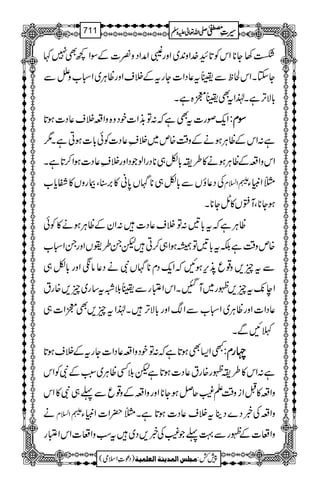 سیرتِ مصطفیٰ صلی اللہ تعالیٰ علیہ وسلم 711
شکست کھا جانا اس کو تائید خداوندی اور غیبی امداد و نصرت کے سوا کچھ بھی نہیں کہا
جا سکتا۔ اس لحاظ سے یقیناً یہ عاداتِ جاریہ کے خلاف اور ظاہری اسباب و علل سے
بالاتر ہے۔ لہٰذا یہ بھی یقیناً معجزہ ہے۔
سوم: ایک صورت یہ بھی ہے کہ نہ تو بذات خود وہ واقعہ خلاف عادت ہوتا
ہے نہ اس کے ظاہر ہونے کے وقت خاص میں خلافِ عادت کوئی بات ہوتی ہے۔ مگر
اس واقعہ کے ظاہر ہونے کا طریقہ بالکل ہی نادر الوجود اور خلاف عادت ہوا کرتا ہے۔
مثلاً انبیاء علیہم السلام کی دعاؤں سے بالکل ہی ناگہاں پانی کا برسنا، بیماروں کا شفایاب
ہو جانا، آفتوں کا ٹل جانا۔
ظاہر ہے کہ یہ باتیں نہ تو خلاف عادت ہیں نہ ان کے ظاہر ہونے کا کوئی
خاص وقت ہے بلکہ یہ باتیں تو ہمیشہ ہوا ہی کرتی ہیں لیکن جن طریقوں اور جن اسباب
سے یہ چیزیں وقوع پذیر ہوئیں کہ ایک دم ناگہاں نبی نے دعا مانگی اور بالکل ہی
اچانک یہ چیزیں ظہور میں آ گئیں۔ اس اعتبار سے یقیناً بلاشبہ یہ ساری چیزیں خارق
عادات اور ظاہری اسباب سے الگ اور بالاتر ہیں۔ لہٰذا یہ چیزیں بھی معجزات ہی
کہلائیں گے۔
چہارم: کبھی ایسا بھی ہوتا ہے کہ نہ تو خود واقعہ عادات جاریہ کے خلاف ہوتا
ہے نہ اس کا طریقہ ظہور خارق عادت ہوتا ہے لیکن بلا کسی ظاہری سبب کے نبی کو اس
واقعہ کا قبل از وقت علم غیب حاصل ہو جانا اور واقعہ کے وقوع سے پہلے ہی نبی کا اس
واقعہ کی خبر دے دینا یہ خلاف عادت ہوتا ہے۔ مثلاً حضرات انبیاء علیہم السلام نے
واقعات کے ظہور سے بہت پہلے جو غیب کی خبریں دی ہیں یہ سب واقعات اس اعتبار
پیش کش: مجلس المدینة العلمیة (دعوت اسلامی)